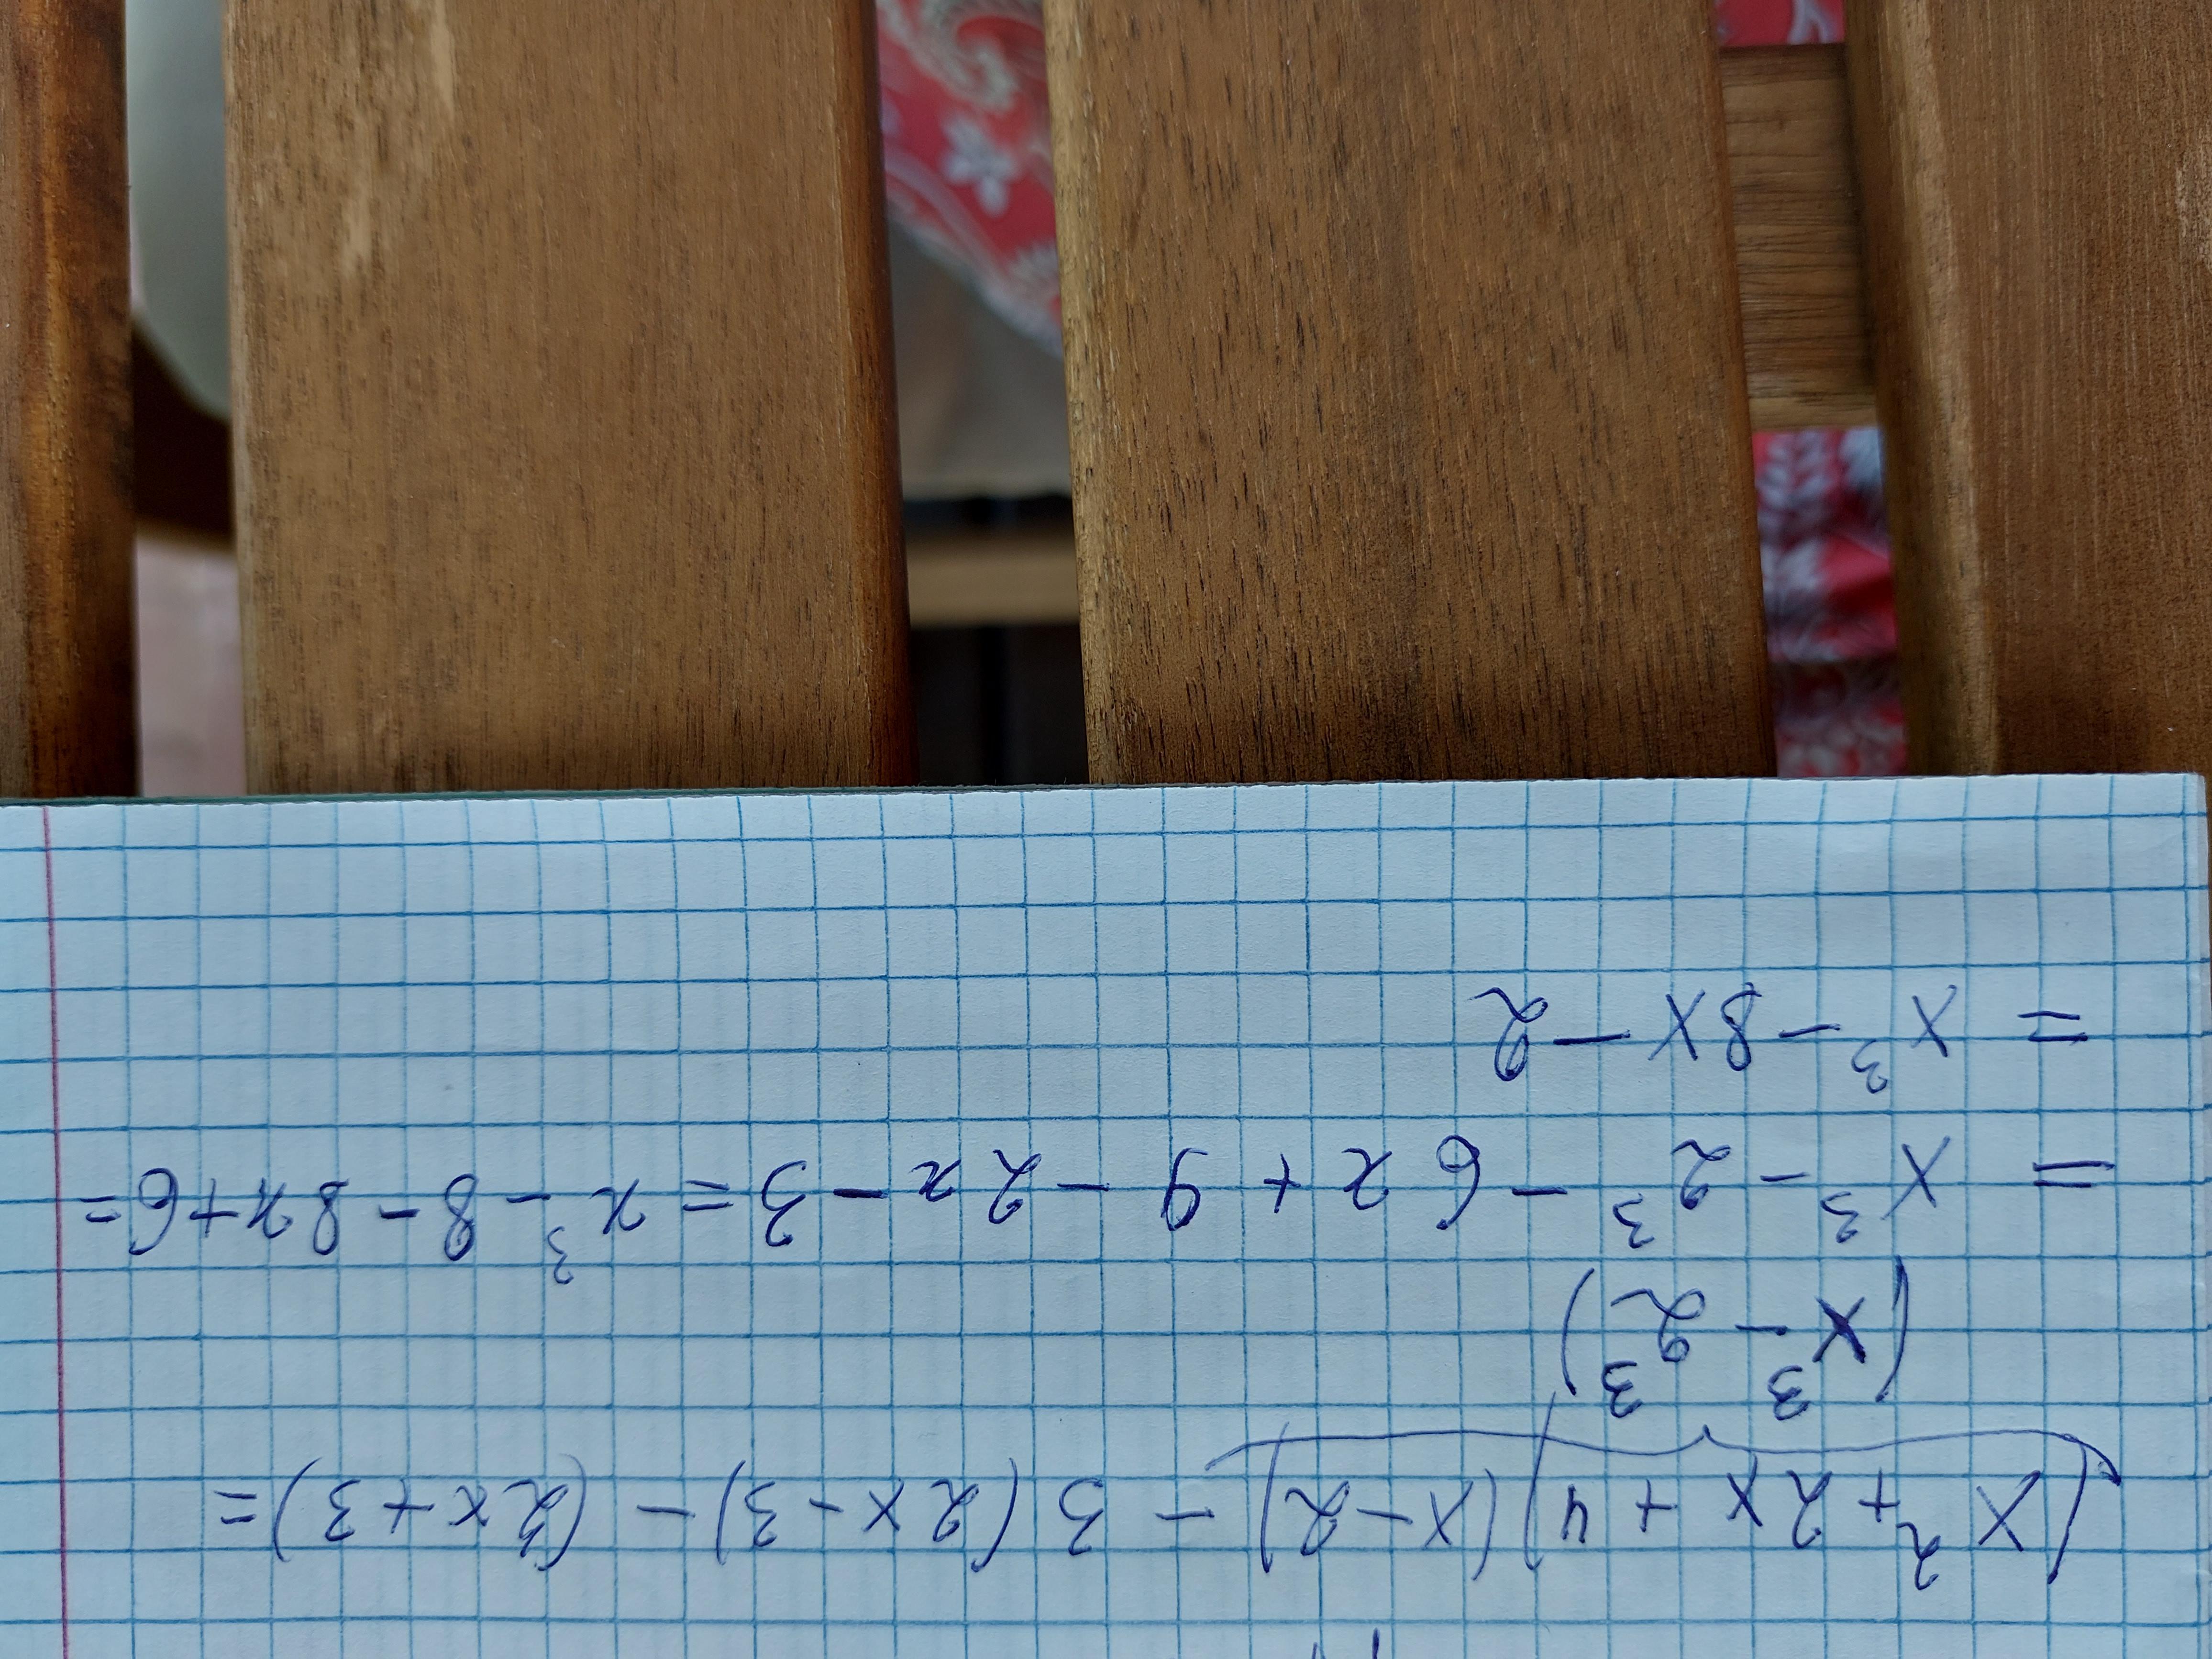 (x² + 2x + 4)(x - 2) - 3(2x - 3) - (2x + 3) =
(x³ - 2³)
= x³ - 2³ - 6x + 9 - 2x - 3 = x³ - 8 - 8x + 6 =
= x³ - 8x - 2